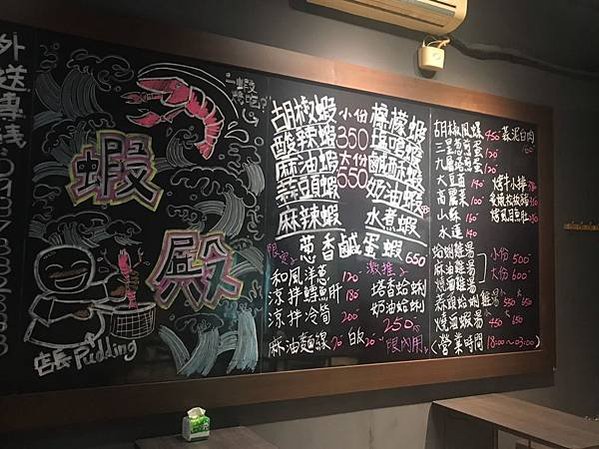 外送專線
一蝦
蝦
殿
店長Pudding
胡椒蝦 小份 檸檬蝦
酸辣蝦 350 鹽焗蝦
麻油蝦 大份 鹹酥蝦
蒜頭蝦 550 奶油蝦
麻辣蝦 水煮蝦
蔥香鹹蛋蝦 650
和風洋蔥 120
激推
涼拌鱈魚肝 180
塔香蛤蜊
涼拌冷筍 200
奶油蛤蜊
250
麻油麵線 20 白飯 20
限內用
胡椒風螺 450 蒜泥白肉
三星蔥煎蛋 120
160
九層塔煎蛋 120
大豆苗 140 烤牛小排
高麗菜 100
山蘇 160
水蓮 140
蛤蜊雞湯 小份 500
麻油雞湯 大份 600
燒酒雞湯
蒜頭蛤蜊雞湯 550 650
燒酒蝦湯 450 650
(營業時間 18:00~03:00)